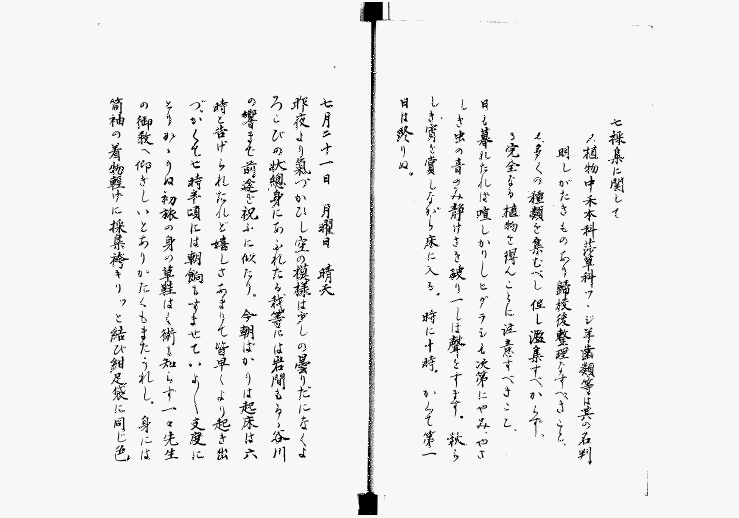 七採集に関して
１植物中禾本科莎草科ツヽジ羊歯類等は其の名判
明しがたきものあり歸校後整理なすべきこと、
２多くの種類を集むべし 但し濫集すべからず、
３完全なる植物を得んことに注意すべきこと、
日も暮れたれば喧しかりしヒグラシも次第にやみ、やさ
しき虫の音のみ静けさを破り一しほ聲をすます。秋ら
しき宵を賞しながら床に入る。 時に十時。 かくて第一
日は終りぬ。
七月二十一日 月曜日 晴天
昨夜より氣づかひし空の模様は少しの曇りだになくよ
ろこびの状總身にあふれたる我等には岩間もるゝ谷川
の響まで前途を祝ふに似たり。今朝ばかりは起床は六
時と告げられたれど嬉しさあまりて皆早くより起き出
づ。かくて七時半頃には朝餉もすませていよ〳〵支度に
とりかゝりぬ 初旅の身の草鞋はく術も知らず一々先生
の御教へ仰ぎしいとありがたくもまたうれし。身には
筒袖の着物軽げに採集袴キリッと結び紺足袋に同じ色